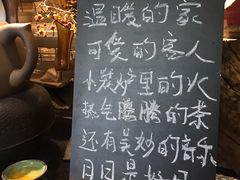 温暖的家
可爱的客人
小炭炉里的火
热气腾腾的茶
还有美妙的音乐
日日是好日